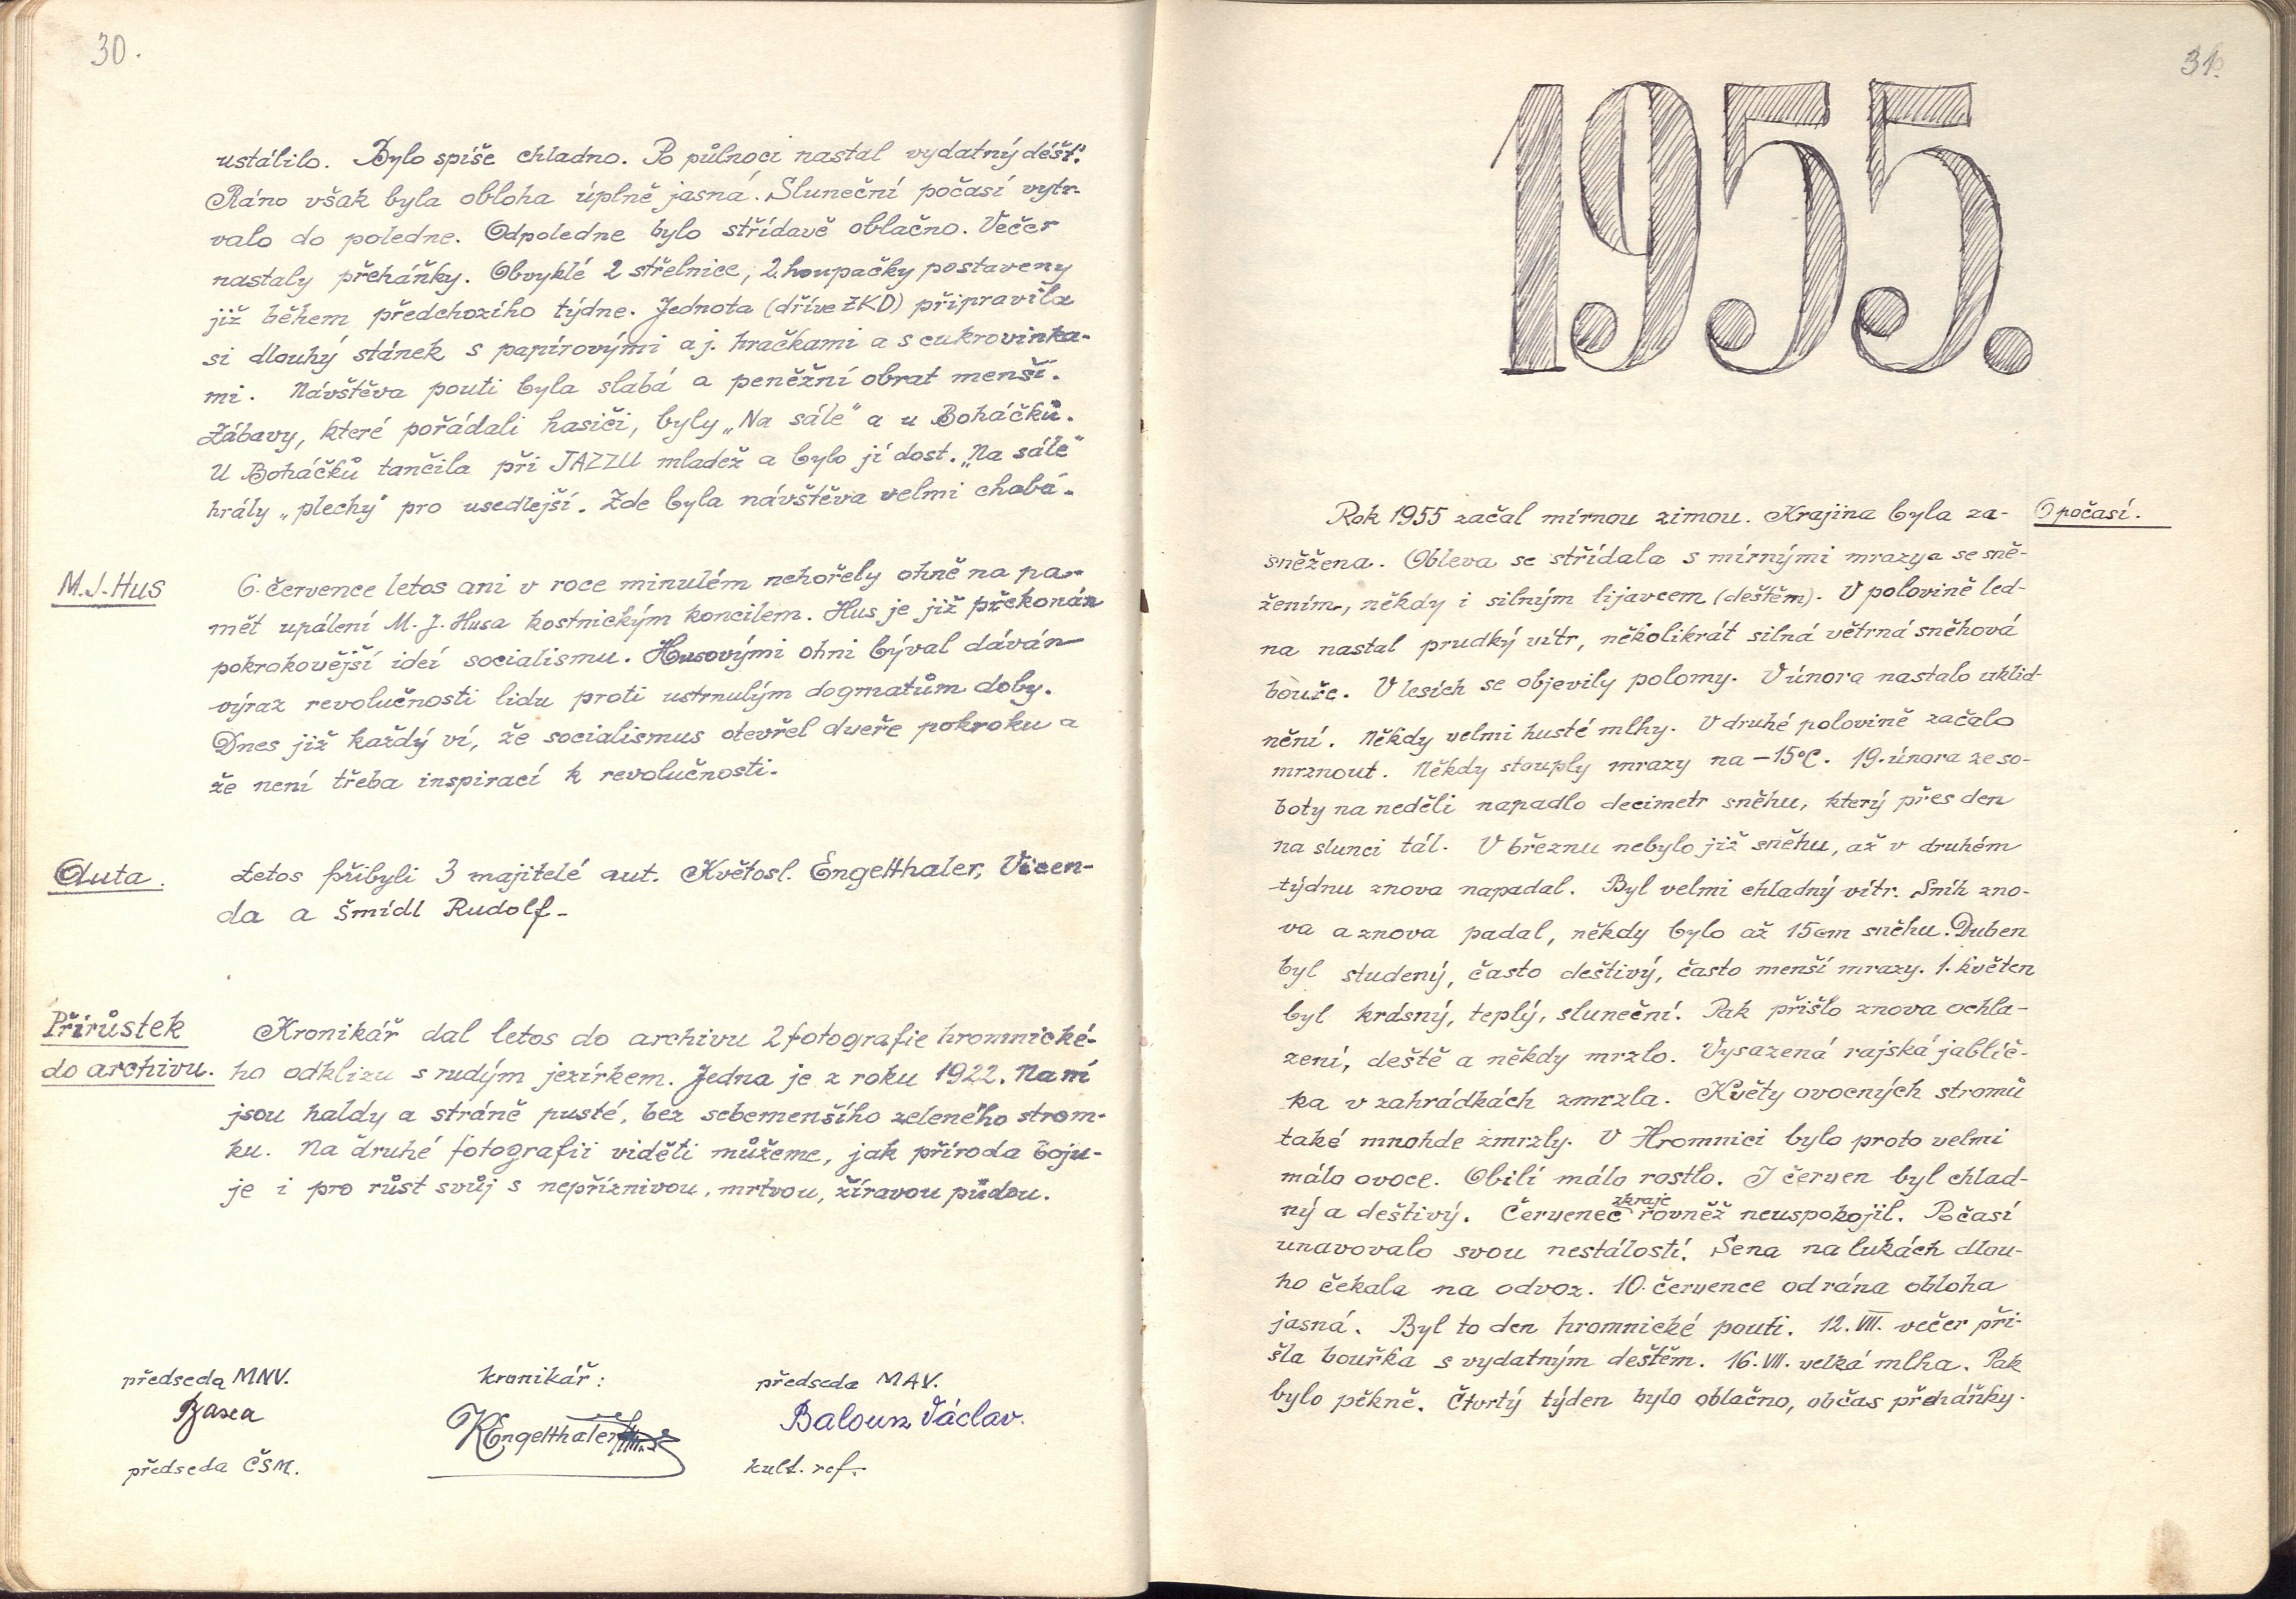 30.
ustálilo. Bylo spíše chladno. Po půlnoci nastal vydatný déšť.
Ráno však byla obloha úplně jasná. Sluneční počasí vytr-
valo do poledne. Odpoledne bylo střídavě oblačno. Večer
nastaly přeháňky. Obvyklé 2 střelnice, 2 houpačky postaveny
již během předchozího týdne. Jednota (dříve ŽKD) připravila
si dlouhý stánek s papírovými a j. hračkami a s cukrovinka-
mi. Návštěva pouti byla slabá a peněžní obrat menší.
Zábavy, které pořádali hasiči, byly „Na sále" a u Boháčků.
U Boháčků tančila při JAZZU mladež a bylo jí dost. „Na sále"
hrály „plechy" pro usedlejší. Zde byla návštěva velmi chabá.
M.J.Hus
6. července letos ani v roce minulém nehořely ohně na pa-
mět upálení M. J. Husa kostnickým koncilem. Hus je již překonán
pokrokovější ideí socialismu. Husovými ohni býval dáván
výraz revolučnosti lidu proti ustrnulým dogmatům doby.
Dnes již každý ví, že socialismus otevřel dveře pokroku a
že není třeba inspirací k revolučnosti.
Auta.
Letos přibyli 3 majitelé aut. Květosl. Engelthaler, Vicen-
da a Šmídl Rudolf.
Přírůstek
do archivu.
Kronikář dal letos do archivu 2 fotografie hromnické-
ho odklizu s rudým jezírkem. Jedna je z roku 1922. Na ní
jsou haldy a stráně pusté, bez sebemenšího zeleného strom-
ku. Na druhé fotografii viděti můžeme, jak příroda boju-
je i pro růst svůj s nepříznivou, mrtvou, žíravou půdou.
předseda MNV.
kronikář:
předseda MAV.
Baxa
KEngelthaler
Baloun Václav.
předseda ČSM.
kult. ref.
31.
1955.
O počasí.
Rok 1955 začal mírnou zimou. Krajina byla za-
sněžena. Obleva se střídala s mírnými mrazy a se sně-
žením, někdy i silným lijavcem (deštěm). V polovině led-
na nastal prudký vítr, několikrát silná větrná sněhová
bouře. V lesích se objevily polomy. V února nastalo uklid-
nění. Někdy velmi husté mlhy. V druhé polovině začalo
mrznout. Někdy stouply mrazy na -15°C. 19. února ze so-
boty na neděli napadlo decimetr sněhu, který přes den
na slunci tál. V březnu nebylo již sněhu, až v druhém
týdnu znova napadal. Byl velmi chladný vítr. Sníh zno-
va a znova padal, někdy bylo až 15cm sněhu. Duben
byl studený, často deštivý, často menší mrazy. 1. květen
byl krásný, teplý, sluneční. Pak přišlo znova ochla-
zení, deště a někdy mrzlo. Vysazená rajská jablíč-
ka v zahrádkách zmrzla. Květy ovocných stromů
také mnohde zmrzly. V Hromnici bylo proto velmi
málo ovoce. Obilí málo rostlo. I červen byl chlad-
ný a deštivý. Červenec zkraje rovněž neuspokojil. Počasí
unavovalo svou nestálostí. Sena na lukách dlou-
ho čekala na odvoz. 10. července od rána obloha
jasná. Byl to den hromnické pouti. 12. VII. večer při-
šla bouřka s vydatným deštěm. 16. VII. velká mlha. Pak
bylo pěkně. Čtvrtý týden bylo oblačno, občas přeháňky.